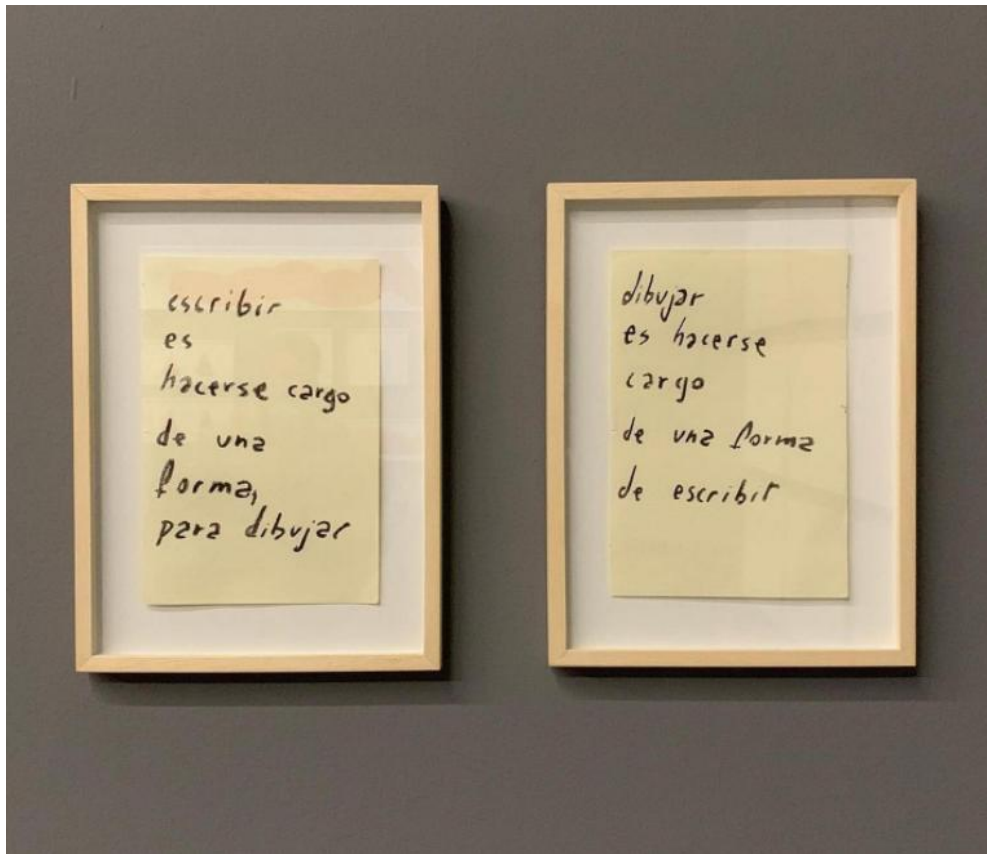 escribir
es
hacerse cargo
de una
forma,
para dibujar
dibujar
es hacerse
cargo
de una forma
de escribir